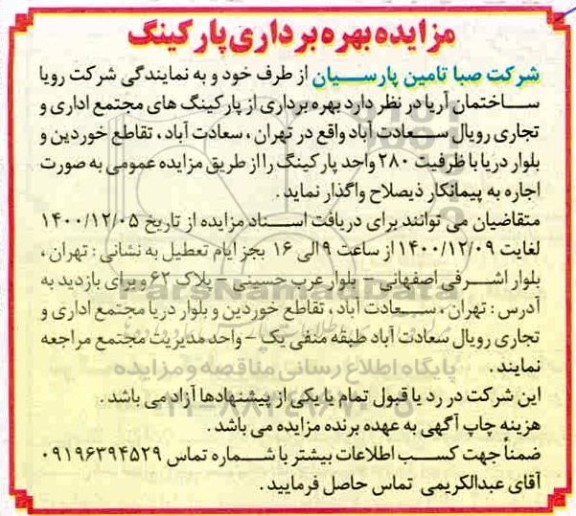 مزایده بهره برداری پارکینگ
شرکت صبا تامین پارسیان از طرف خود و به نمایندگی شرکت رویا
ساختمان آریا در نظر دارد بهره برداری از پارکینگ های مجتمع اداری و
تجاری رویال سعادت آباد واقع در تهران ، سعادت آباد ، تقاطع خوردین و
بلوار دریا با ظرفیت ۲۸۰ واحد پارکینگ را از طریق مزایده عمومی به صورت
اجاره به پیمانکار ذیصلاح واگذار نماید .
متقاضیان می توانند برای دریافت اسناد مزایده از تاریخ ۱۴۰۰/۱۲/۰۵
لغایت ۱۴۰۰/۱۲/۰۹ از ساعت ۹ الی ۱۶ بجز ایام تعطیل به نشانی : تهران ،
بلوار اشرفی اصفهانی - بلوار عرب حسینی - پلاک ۶۲ و برای بازدید به
آدرس : تهران ، سعادت آباد ، تقاطع خوردین و بلوار دریا مجتمع اداری و
تجاری رویال سعادت آباد طبقه منفی یک - واحد مدیریت مجتمع مراجعه
نمایند .
پایگاه اطلاع رسانی مناقصه و مزایده
این شرکت در رد یا قبول تمام یا یکی از پیشنهادها آزاد می باشد .
هزینه چاپ آگهی به عهده برنده مزایده می باشد .
ضمناً جهت کسب اطلاعات بیشتر با شماره تماس ۰۹۱۹۶۳۹۴۵۲۹
آقای عبدالکریمی تماس حاصل فرمایید .
ParsNamadData